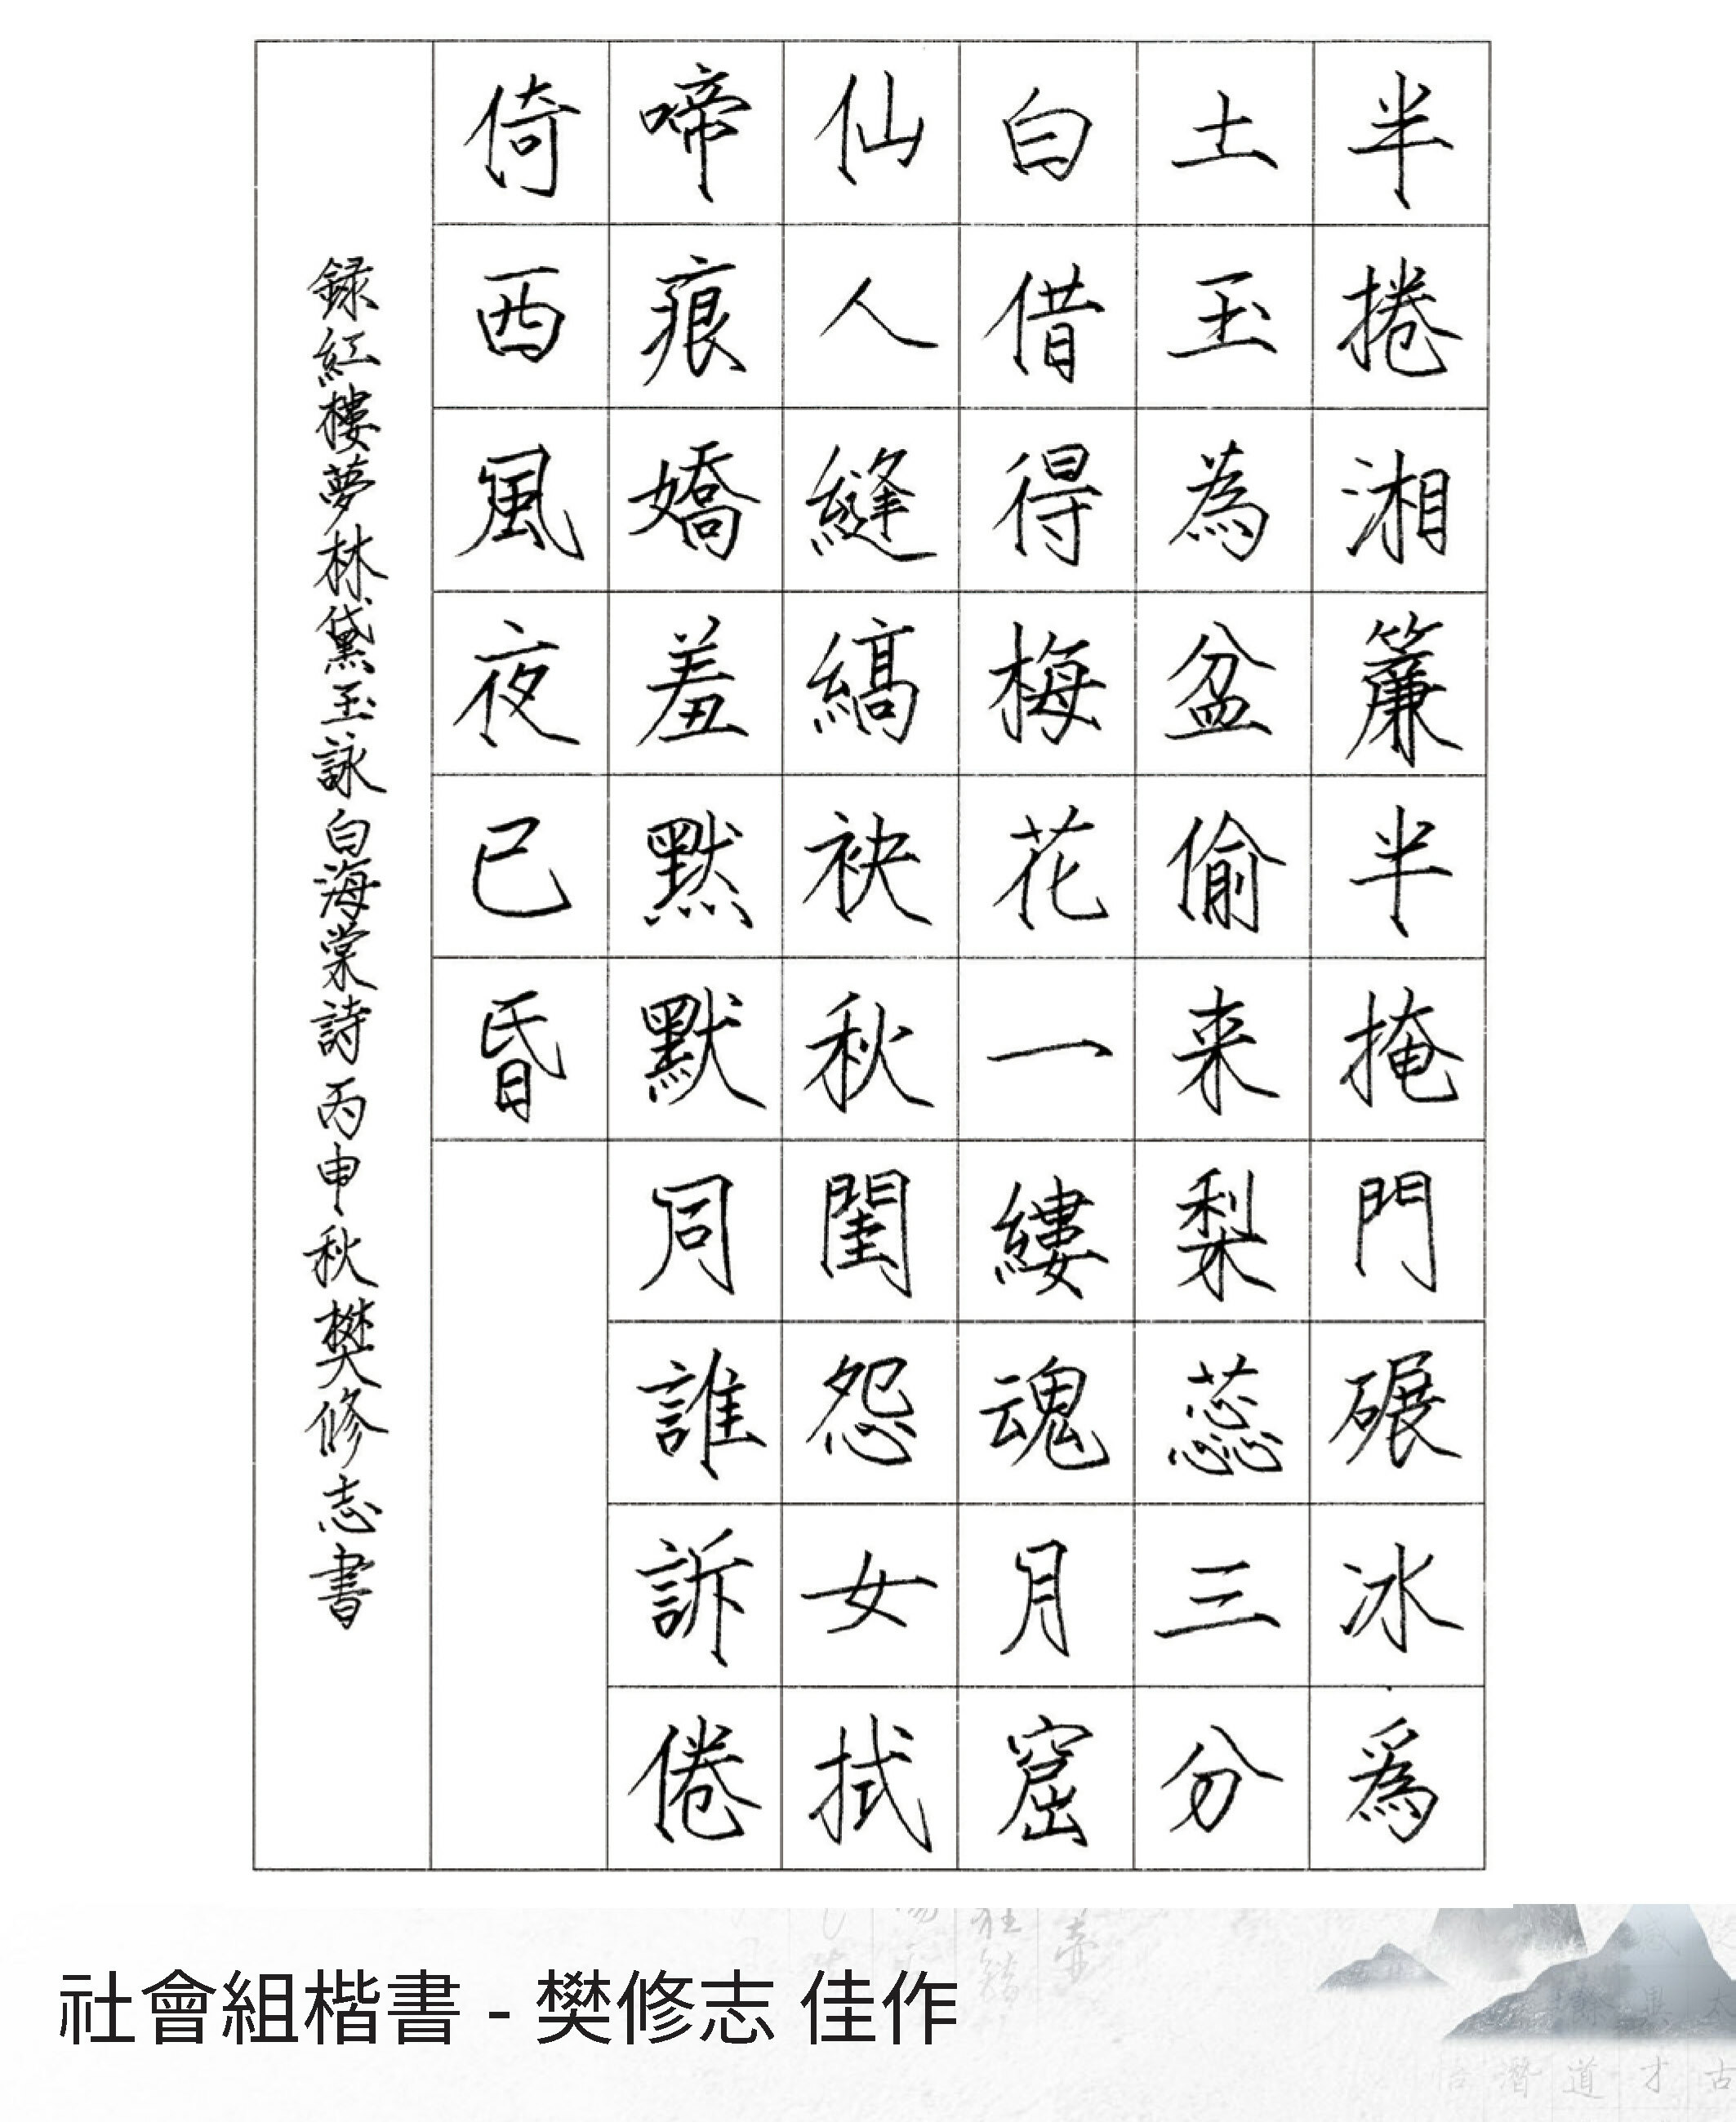 半捲湘簾半掩門碾冰爲
土玉為盆偷来梨蕊三分
白借得梅花一縷魂月窟
仙人縫縞袂秋閨怨女拭
啼痕嬌羞默默同誰訴倦
倚西風夜已昏
録紅樓夢林黛玉詠白海棠詩丙申秋樊修志書
社會組楷書 - 樊修志 佳作